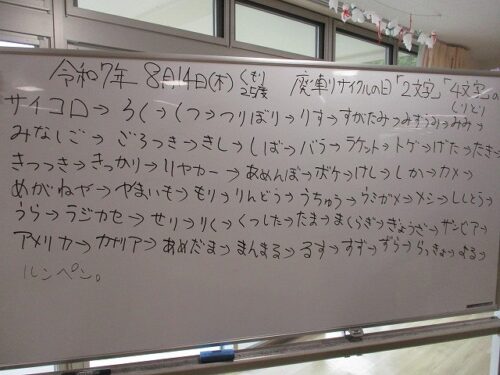 令和7年 8月14日(木) くもり 25度 廃車リサイクルの日「2文字」「4文字」の
しりとり
サイコロ→ろく→くつ→つりぼり→りす→すがたみ→みずうみ→みみ→
みなしご→ごろつき→きし→しば→バラ→ラケット→トゲ→げた→たき→
きつつき→きっかり→リヤカー→あめんぼ→ボケ→けし→しか→カメ→
めがねや→やまいも→もり→りんどう→うちゅう→ウミガメ→メシ→ししとう→
うら→ラジカセ→せり→りく→くっした→たま→まくらぎ→ぎょうざ→ザンビア→
アメリカ→カナリア→あめだま→まんまる→るす→すず→ずら→らっきょ→よる→
ルンペン。